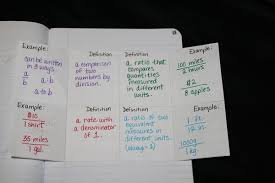 Example:
can be written
in 3 ways.
a/b a to b
a:b
Definition
a comparison
of two
numbers by
division.
Definition
a ratio that
compares
quantities
measured
in different
units.
Example:
100 miles
2 hours
$2
8 apples
Example:
$10
1 shirt
35 miles
1 gal
Definition
a rate with
a denominator
of 1.
Definition
a ratio of two
equivalent
measures in
different units.
(always = 1)
Example:
1 ft.
12 in.
1000g
1 kg